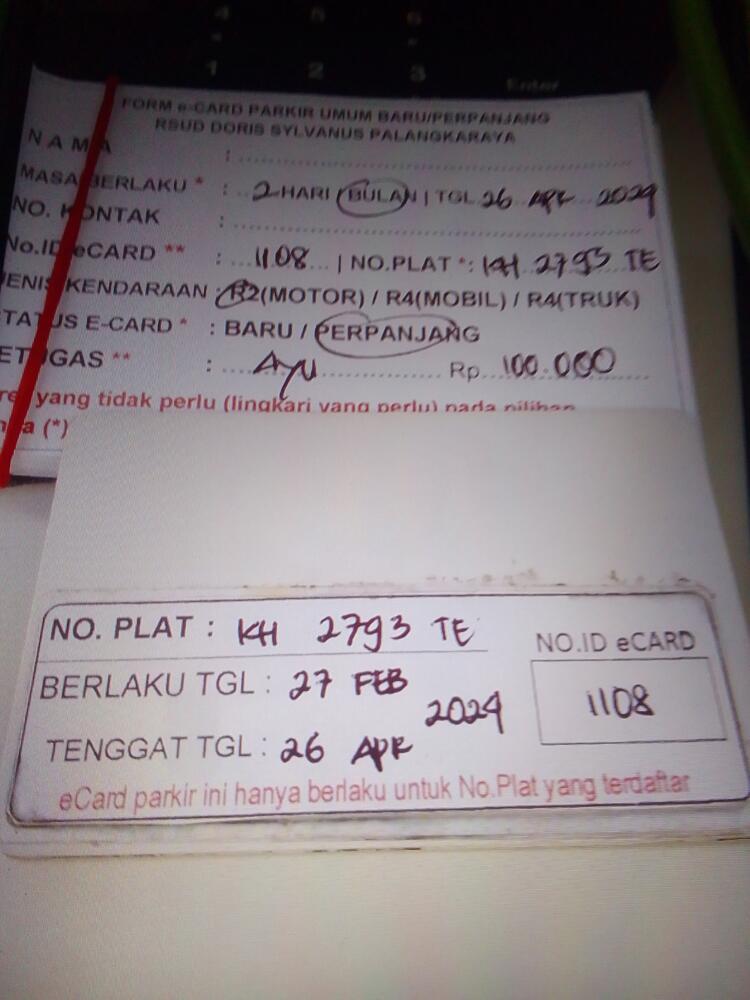 4 5 6
1 2 3 Enter
FORM e-CARD PARKIR UMUM BARU/PERPANJANG
RSUD DORIS SYLVANUS PALANGKARAYA
NAMA :
MASA BERLAKU * : 2 HARI / BULAN | TGL 26 APR 2024
NO. KONTAK :
No.ID eCARD ** : 1108 | NO.PLAT *: KH 2793 TE
JENIS KENDARAAN : R2(MOTOR) / R4(MOBIL) / R4(TRUK)
STATUS E-CARD * : BARU / PERPANJANG
PETUGAS ** : AYU Rp. 100.000
yang tidak perlu (lingkari yang perlu) pada pilihan
(*)
NO. PLAT : KH 2793 TE
NO.ID eCARD
BERLAKU TGL : 27 FEB
2024
1108
TENGGAT TGL : 26 APR
eCard parkir ini hanya berlaku untuk No.Plat yang terdaftar